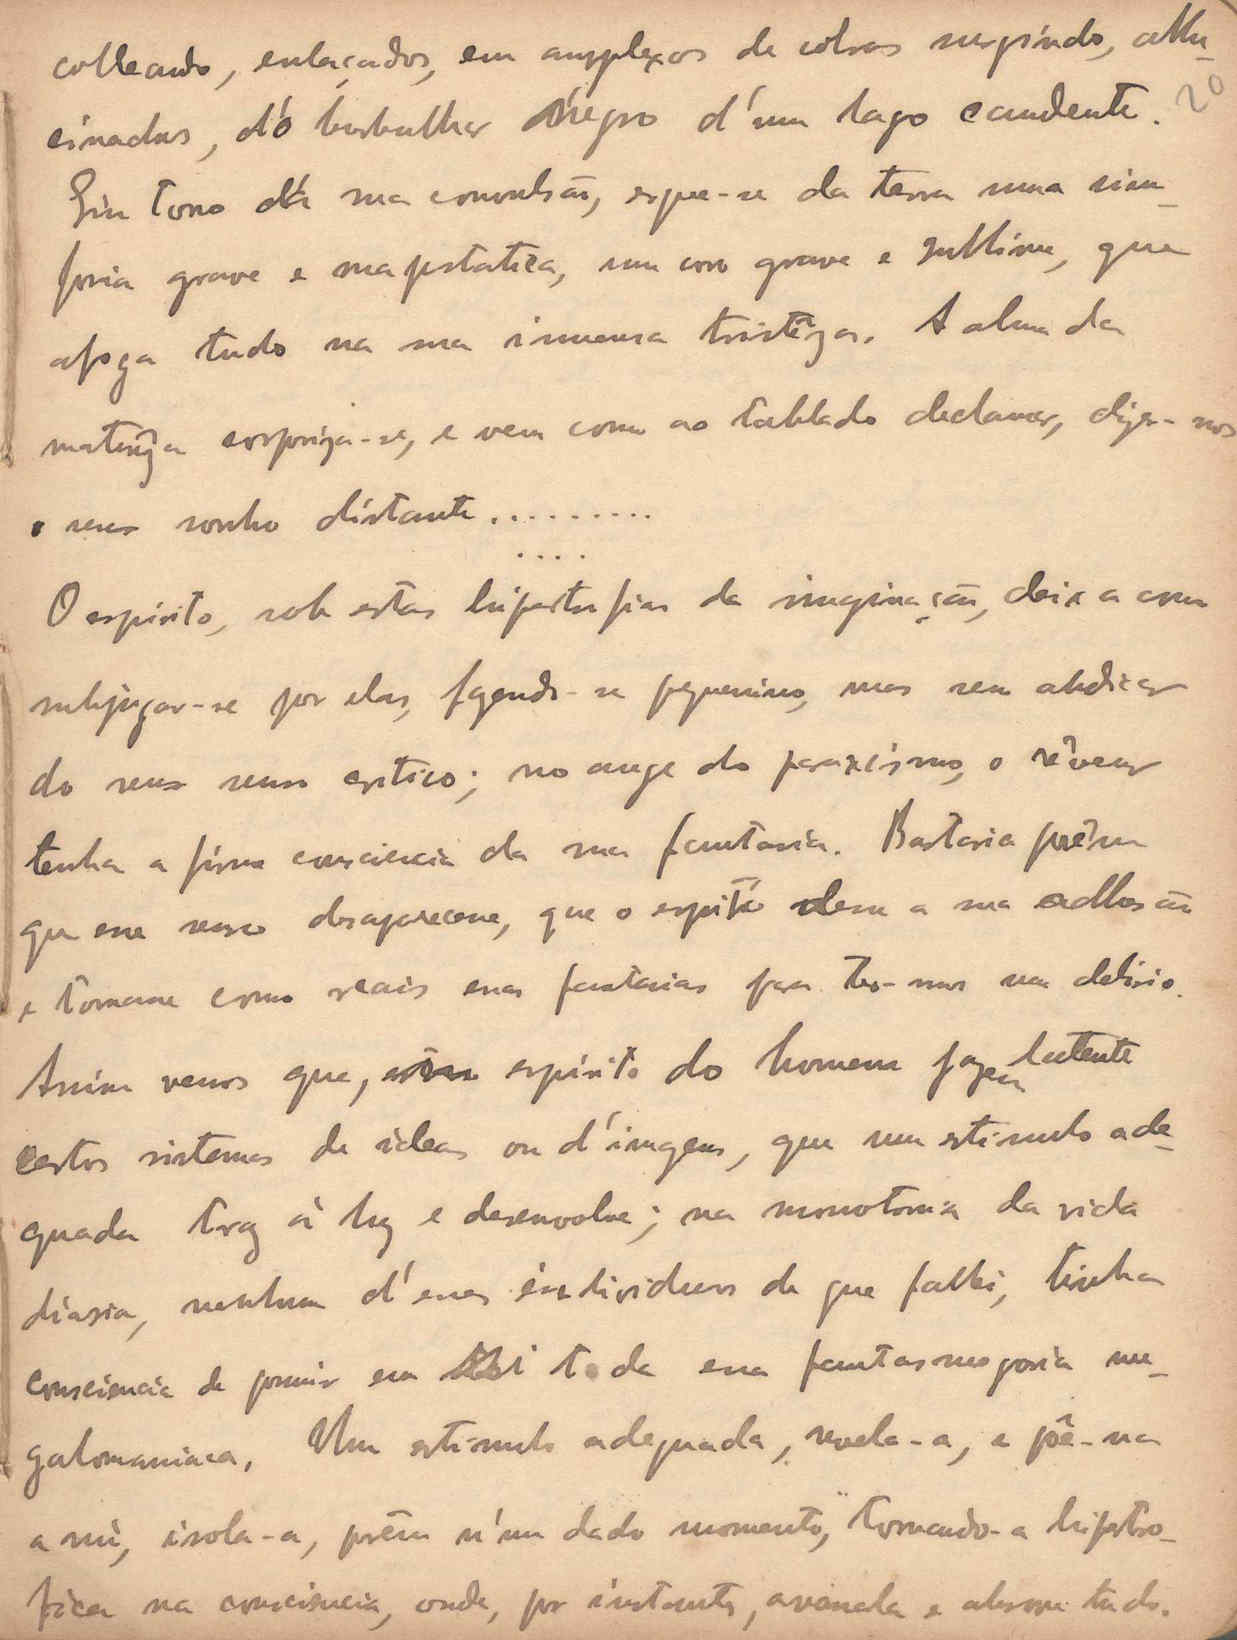 colleando, enlaçados, em amplexos de cobras surgindo, allu-
cinadas, d'o borbulhar négro d'um lago candente.
20
Em torno d'a sua convulsão, ergue-se da terra uma sim-
fonia grave e magestatica, um coro grave e sublime, que
afoga tudo na sua immensa tristêza. A alma da
matéria corporiza-se, e vem como ao tablado declamar, dizer-nos
o seu sonho distante .........
....
O espirito, sob estas hipertrofias da imaginação, deixa como
subjugar-se por elas, fazendo-se pequenino, mas sem abdicar
do seu senso critico; no auge do paroxismo, o rêveur
tenha a firme consciencia da sua fantasia. Bastaria porêm
que esse senso desaparecesse, que o espirito désse a sua adhesão
e tomasse como reais essas fantasias para ter-mos um delirio.
Assim vemos que, espirito do homem jazem latente
certos sistemas de ideas ou d'imagens, que um estimulo ade-
quada traz á luz e desenvolve; na monotonia da vida
diaria, nenhum d'esses individuos de que fallei, tinha
consciencia de possuir em si toda essa fantasmagoria me-
galomaniaca. Um estimulo adequada, revela-a, e põe-na
a nú, isola-a, porêm n'um dado momento, tornando-a hipertro-
fica na consciencia, onde, por instantes, avassala e absorve tudo.